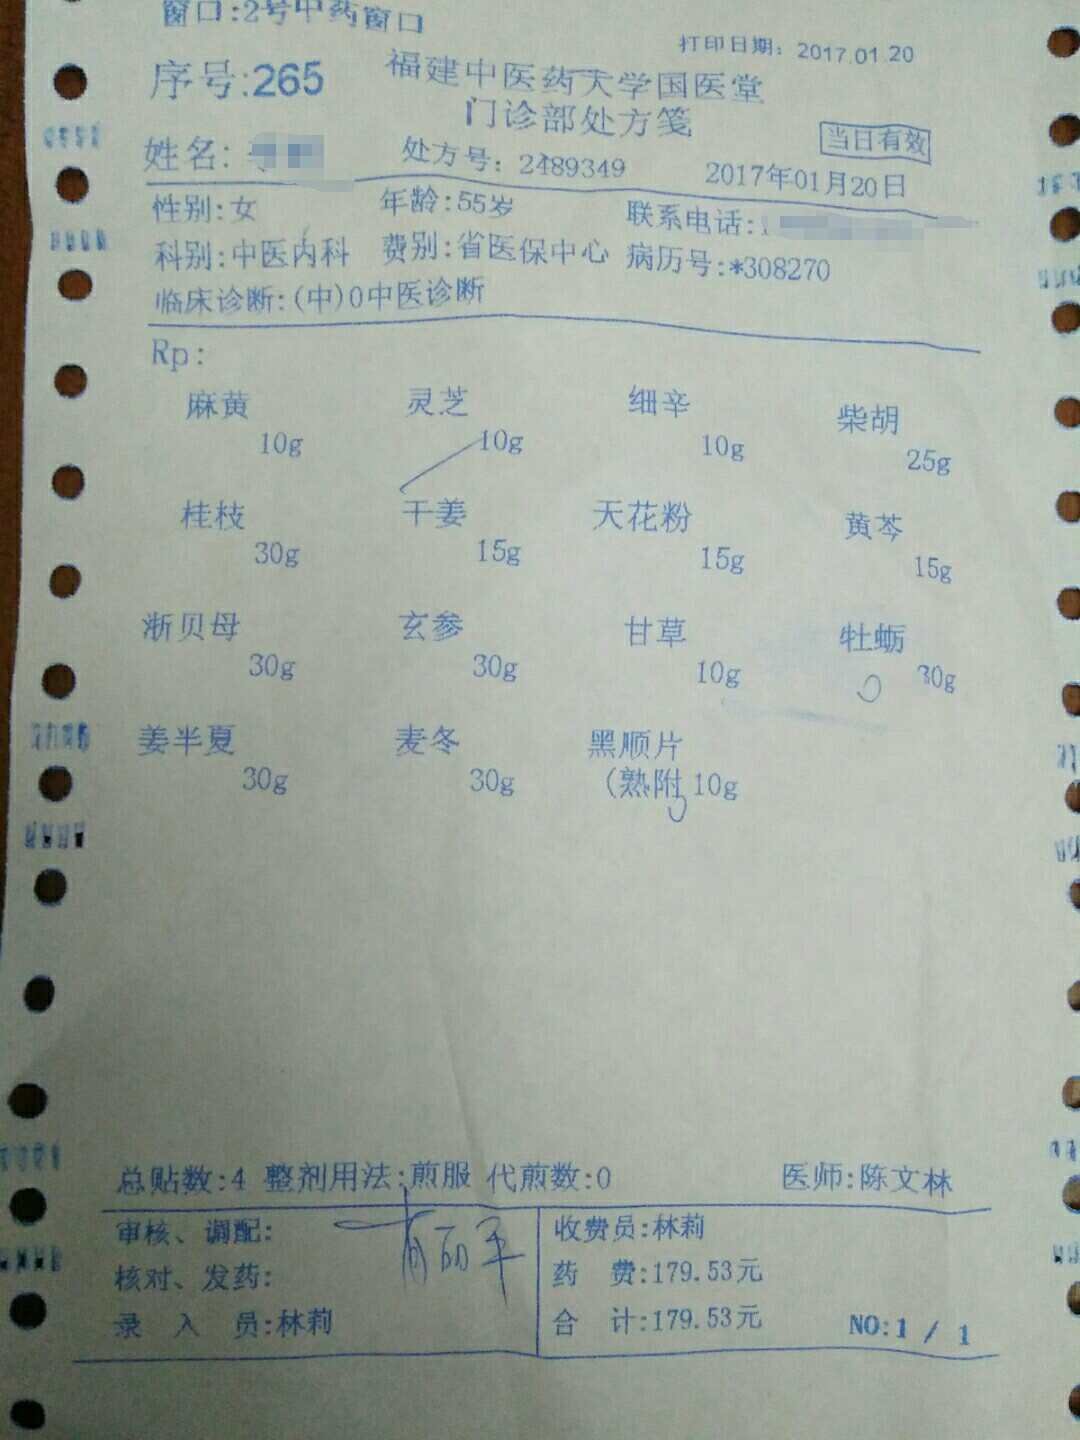 窗口:2号中药窗口
打印日期: 2017.01.20
序号:265 福建中医药大学国医堂
门诊部处方笺
当日有效
姓名: 处方号: 2489349 2017年01月20日
性别:女 年龄:55岁 联系电话:
科别:中医内科 费别:省医保中心 病历号:*308270
临床诊断:(中)0中医诊断
Rp:
麻黄 灵芝 细辛 柴胡
10g 10g 10g 25g
桂枝 干姜 天花粉 黄芩
30g 15g 15g 15g
浙贝母 玄参 甘草 牡蛎
30g 30g 10g 30g
姜半夏 麦冬 黑顺片
30g 30g (熟附 10g
总贴数:4 整剂用法:煎服 代煎数:0 医师:陈文林
审核、调配: 收费员:林莉
核对、发药: 药 费:179.53元
录 入 员:林莉 合 计:179.53元 NO:1 / 1